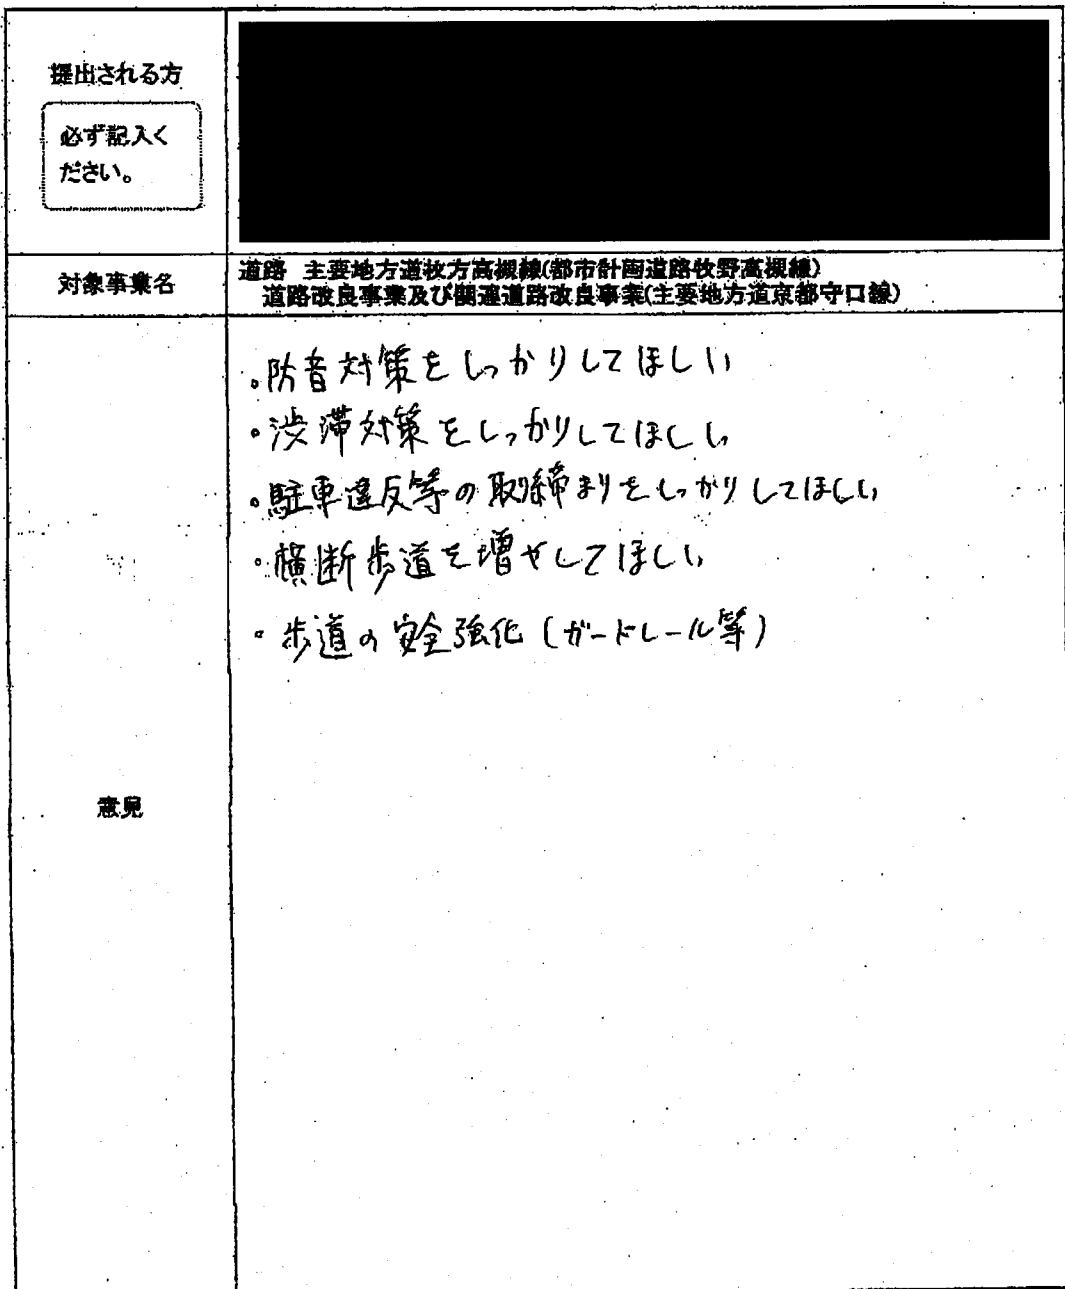 提出される方
必ず記入く
ださい。
対象事業名
道路 主要地方道枚方高槻線(都市計画道路牧野高槻線)
道路改良事業及び関連道路改良事業(主要地方道京都守口線)
。防音対策をしっかりしてほしい
・渋滞対策をしっかりしてほしい
。駐車違反等の取締まりをしっかりしてほしい
・横断歩道を増やしてほしい
・歩道の安全強化(ガードレール等)
意見